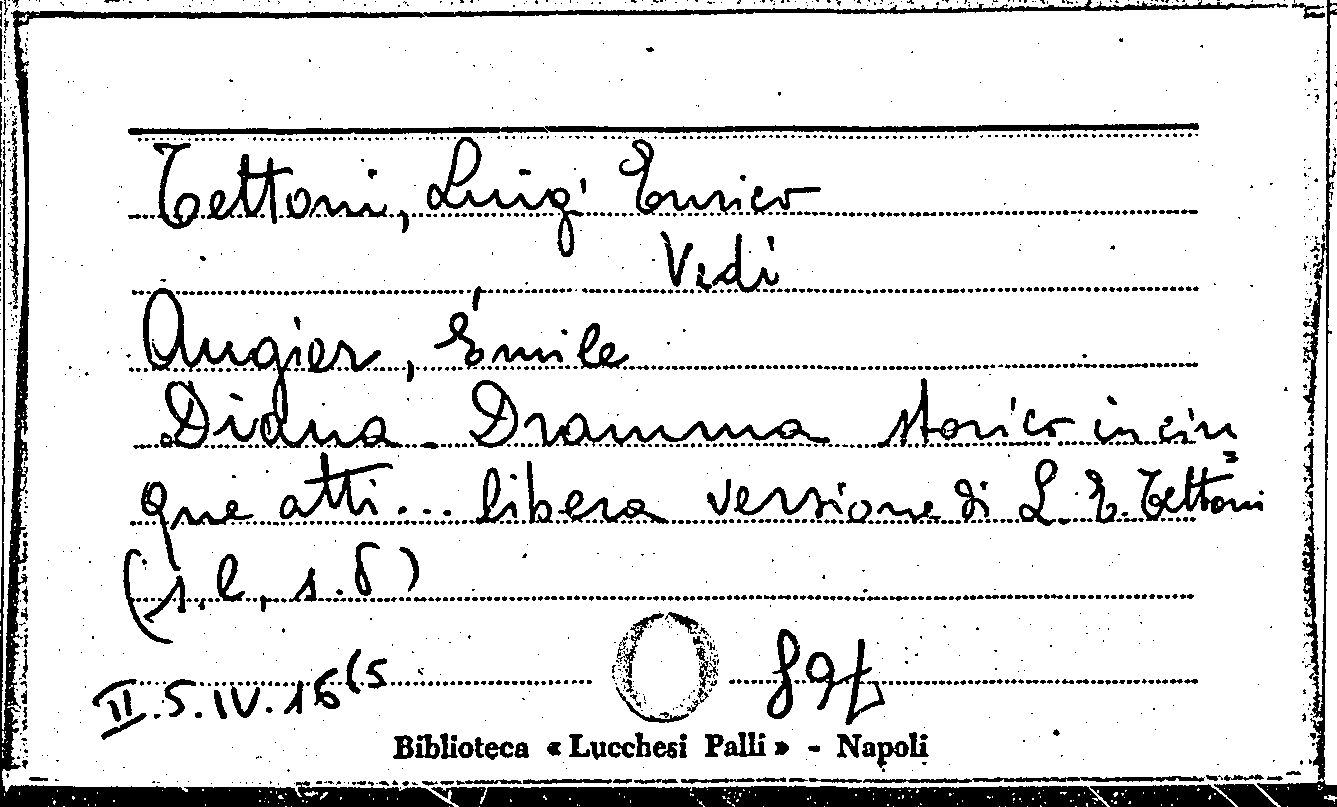 Tettoni, Luigi Enrico
Vedi
Augier, Émile
Diana - Dramma storico in cin=
que atti... libera versione di L. E. Tettoni
(s.l, s.d)
II.S.IV.16(5
Biblioteca « Lucchesi Palli » - Napoli